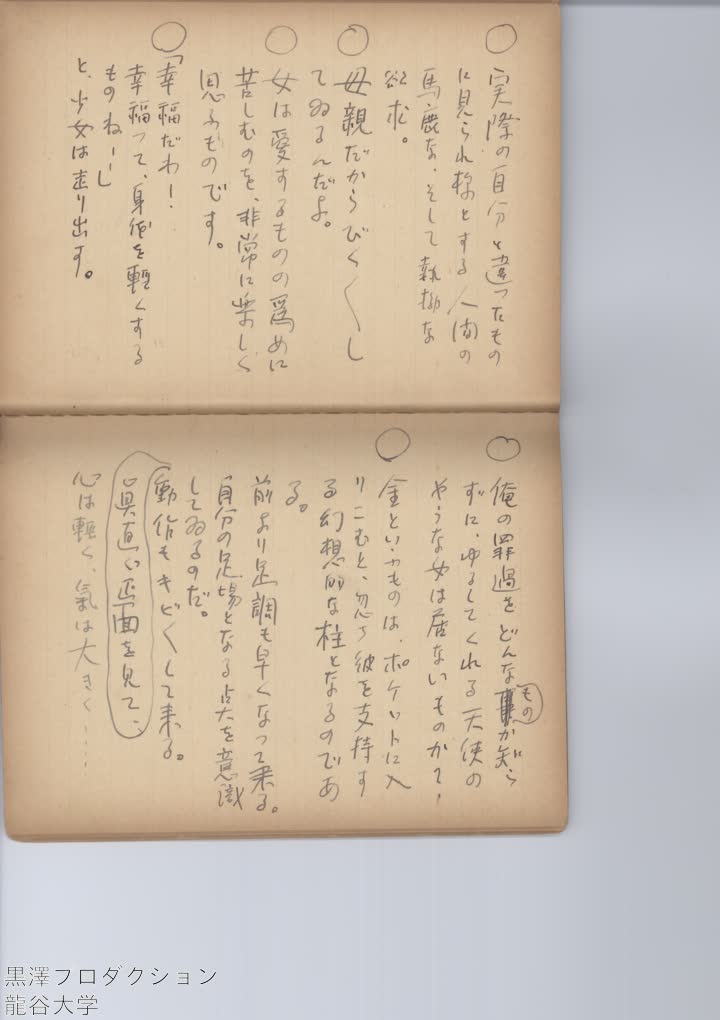 ○ 実際の自分と違ったもの
に見られ様とする人間の
馬鹿な、そして執拗な
欲求。
○ 母親だからびく〱し
てゐるんだよ。
○ 女は愛するものの為めに
苦しむのを、非常に楽しく
思ふものです。
○ 「幸福だわ!
幸福って、身体を軽くする
ものねー」
と、少女は走り出す。
○ 俺の罪過をどんなものか知ら
ずに、ゆるしてくれる天使の
やうな女は居ないものかて、
○ 金といふものは、ポケットに入
りこむと、忽ち彼を支持す
る幻想的な柱となるのであ
る。
前より足調も早くなって来る。
自分の足場となる点を意識
してゐるのだ。
動作もキビ〱して来る。
真直ぐ正面を見て、
心は軽く、氣は大きく……
黒澤プロダクション
龍谷大学